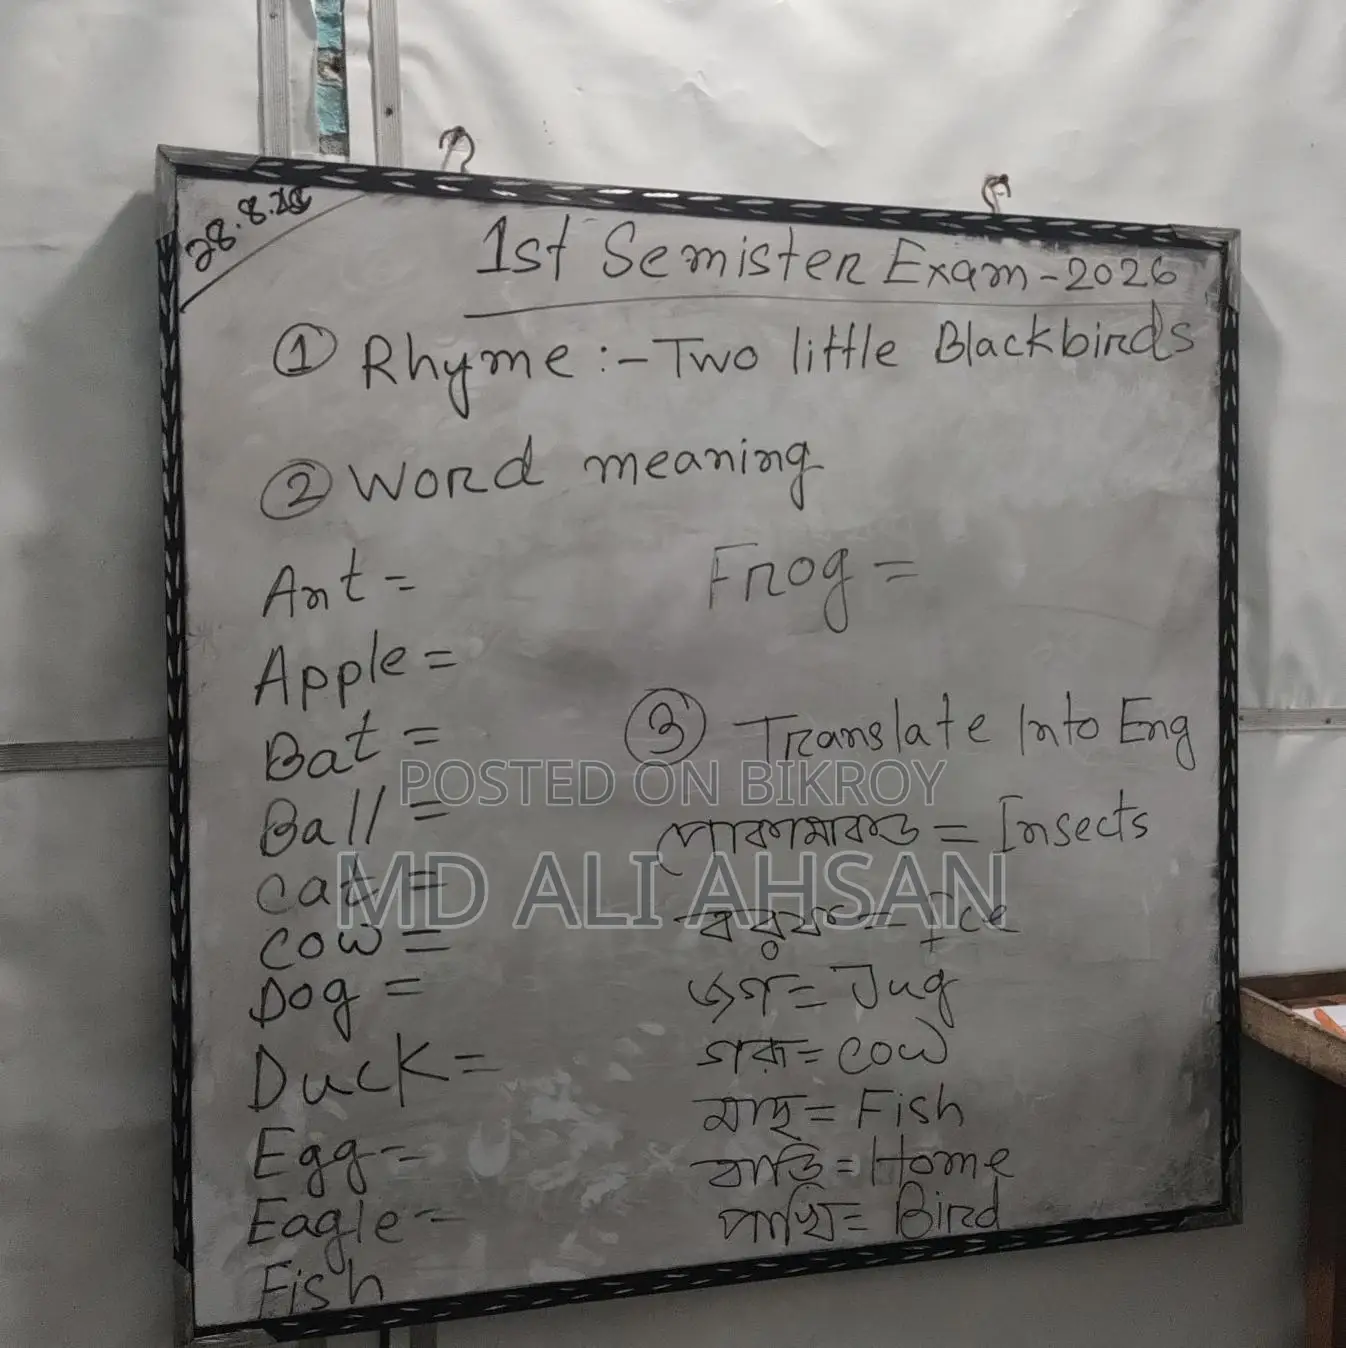 28.8.25
1st Semister Exam-2026
① Rhyme :- Two little Blackbirds
② Word meaning
Ant =
Apple =
Bat =
Ball =
Cat =
Cow =
Dog =
Duck =
Egg =
Eagle =
Fish
Frog =
③ Translate Into Eng
পোকামাকড় = Insects
বরফ = Ice
জগ = Jug
গরু = Cow
মাছ = Fish
বাড়ি = Home
পাখি = Bird
POSTED ON BIKROY
MD ALI AHSAN